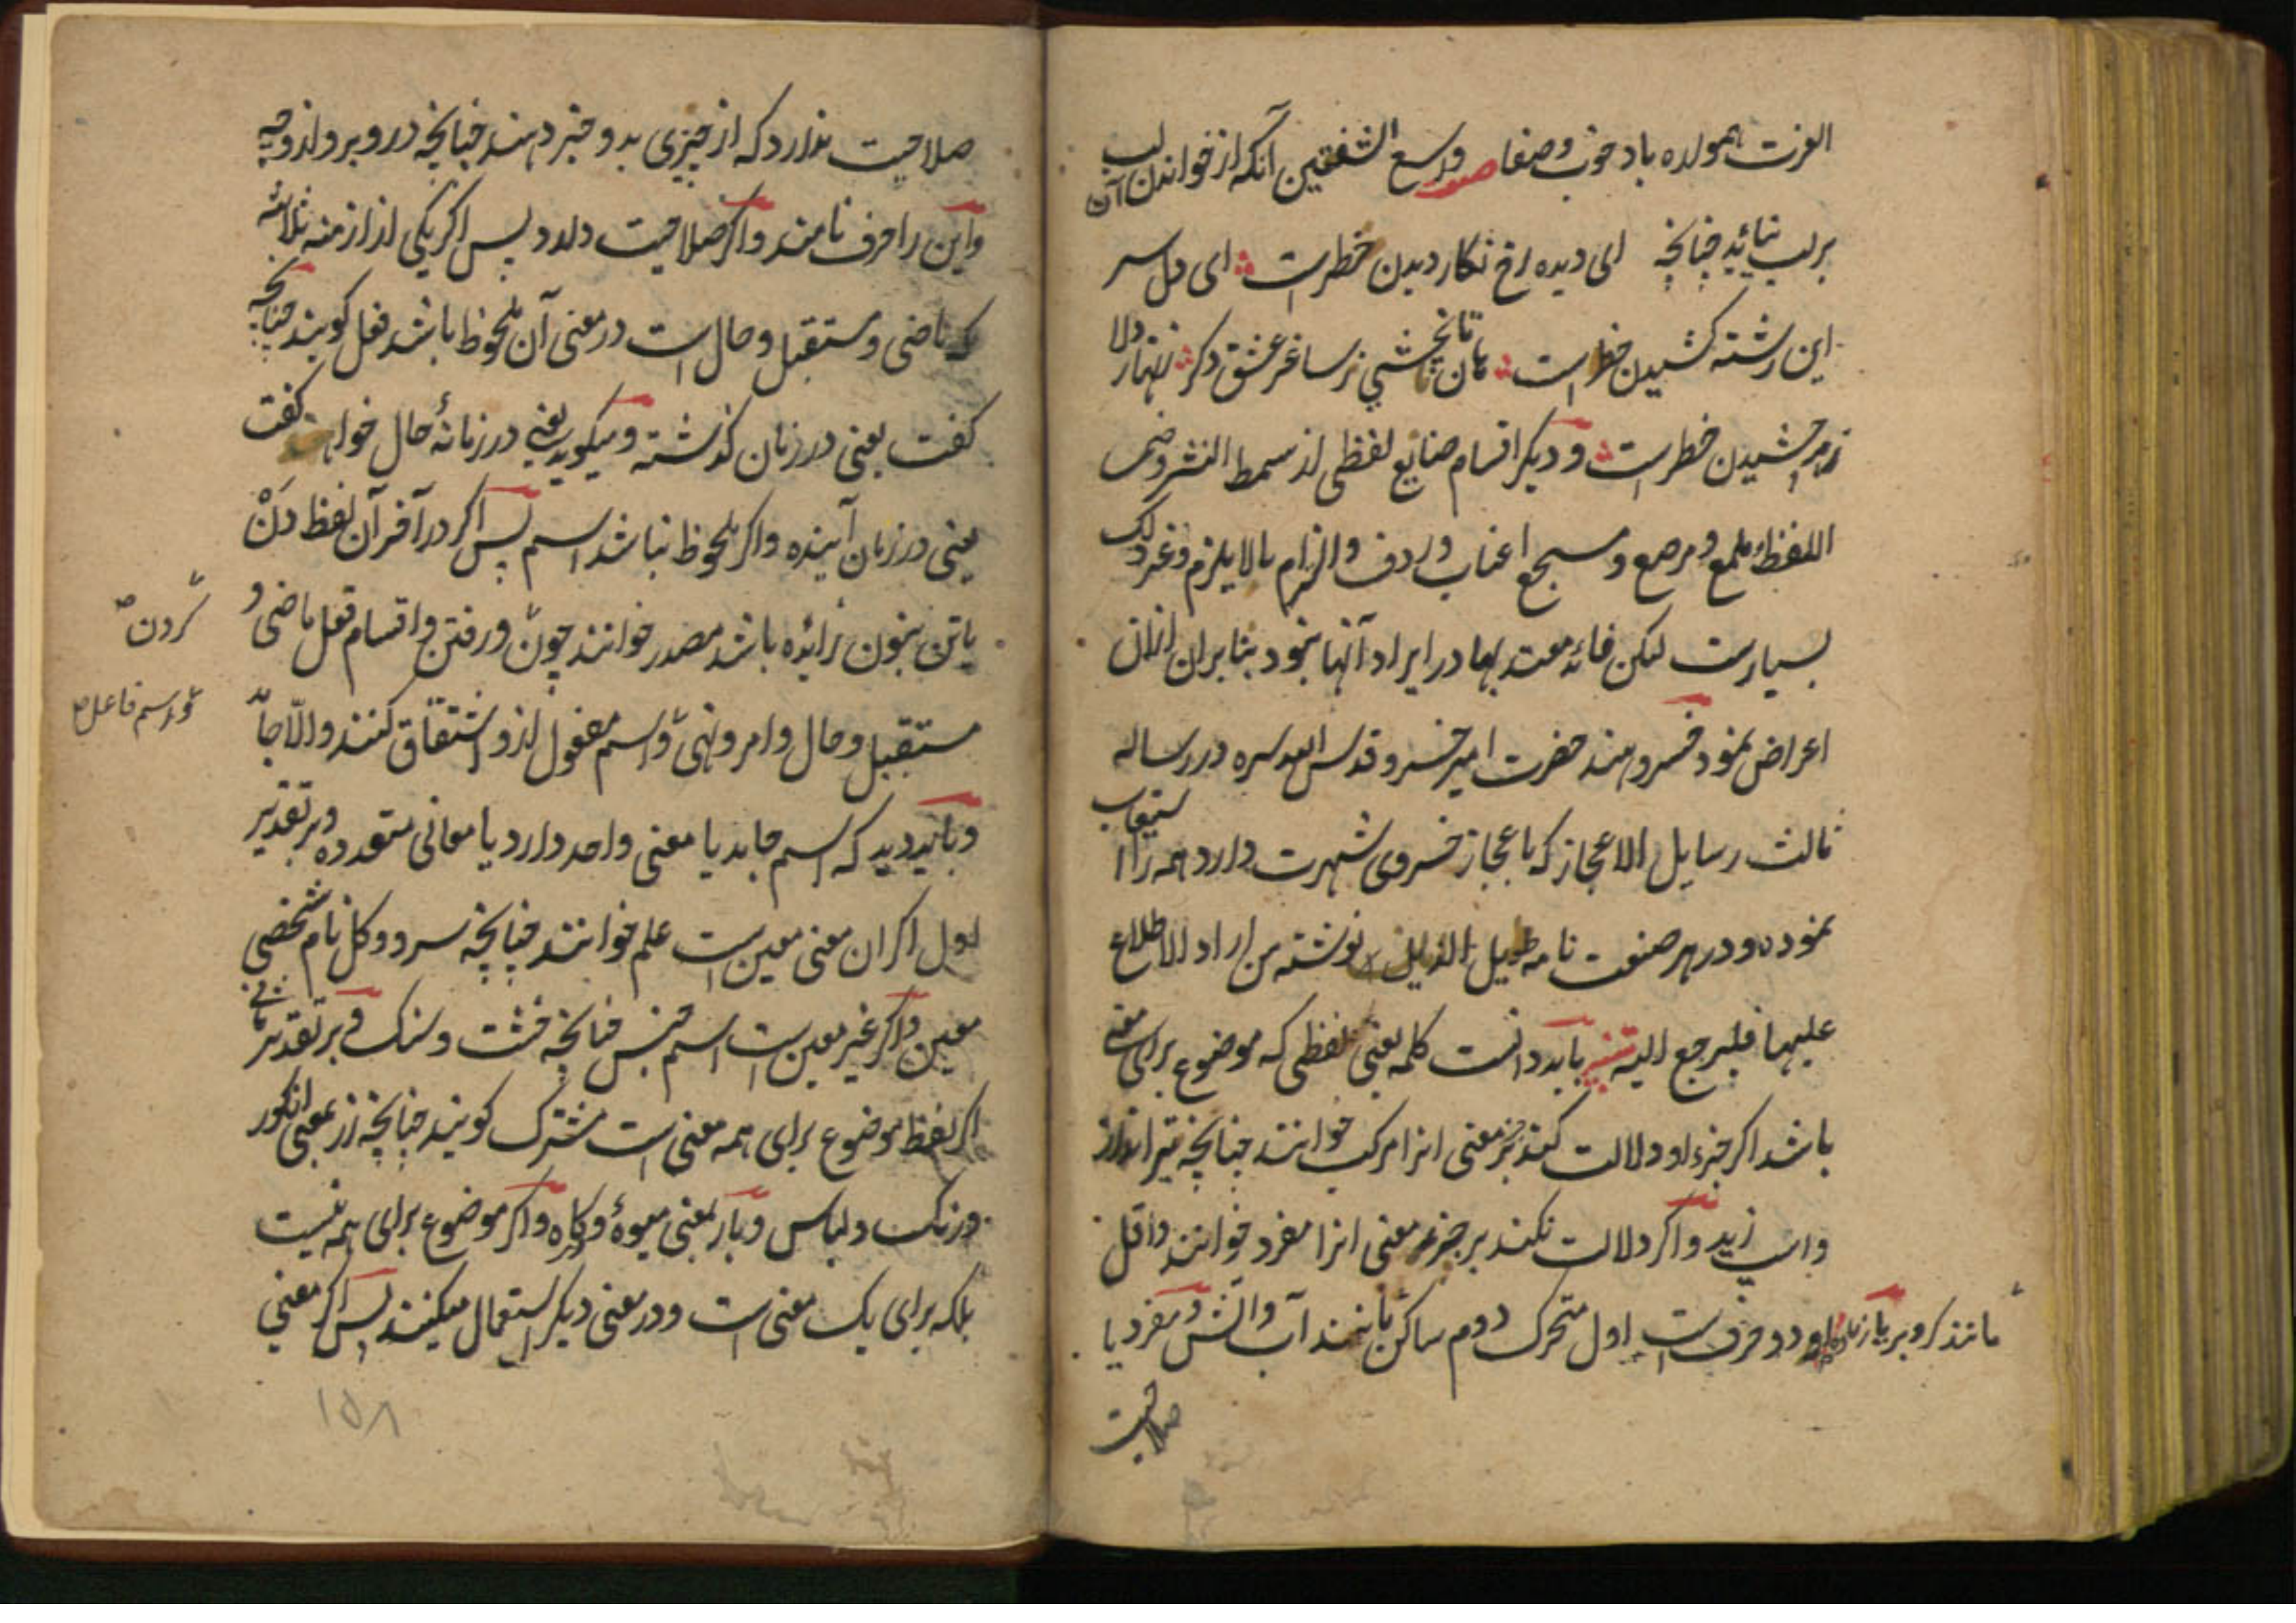 العزت همواره باد خوب وصفا صفت واسع الشفتین آنکه از خواندن آن لب
بر لب نیاید چنانچه ای دیده رخ نگار دیدن خطرست ای دل سر
این رشته کشیدن خطر است هان تا نچشی ز ساغر عشق دگر زنهار دلا
زهر چشیدن خطرست و دیگر اقسام صنایع لفظی از سمط النثر و ضمی
اللفظ و ملمع و مرصع و مسجع اعناب و ردف والتزام مالا یلزم و غیر ذلک
بسیارست لیکن فائده معتد بها در ایراد آنها نبود بنابران ازان
اعراض نمود خسرو هند حضرت امیر خسرو قدس الله سره در رساله
ثالث رسایل الاعجاز که باعجاز خسروی شهرت دارد همه را استیعاب
نموده و در هر صنعت نامه طویل الذیل نوشته من اراد الاطلاع
علیها فلیرجع الیه تنبیه باید دانست کلمه یعنی لفظی که موضوع برای معنی
باشد اگر جزء او دلالت کند بر جزء معنی انرا مرکب خوانند چنانچه تیر انداز
و اسپ زید و اگر دلالت نکند بر جزء معنی انرا مفرد خوانند و اقل
مانند کر و بر یا زیاده او دو حرف ست اول متحرک دوم ساکن مانند آب و آتش و مفرد یا
صلاحیت
صلاحیت ندارد که از چیزی بدو خبر دهند چنانچه در و بر و از و چه
و این را حرف نامند و اگر صلاحیت دارد پس اگر یکی از ازمنه ثلاثه
که ماضی و مستقبل و حال است در معنی آن ملحوظ باشد فعل گویند چنانچه
گفت یعنی در زمان گذشته و میگوید یعنی در زمانهٔ حال خواهد گفت
یعنی در زمان آینده و اگر ملحوظ نباشد اسم پس اگر در آخر آن لفظ دَنْ
یا تن بنون زائده باشد مصدر خوانند چون و رفتن و اقسام فعل ماضی و
گردن
مستقبل و حال و امر و نهی و اسم مفعول ازو اشتقاق کنند والّا جامد
و اسم فاعل
و باید دید که اسم جامد یا معنی واحد دارد یا معانی متعدده و بر تقدیر
اول اگر ان معنی معین ست علم خوانند چنانچه سرو و گل نام شخصی
معین و اگر غیر معین ست اسم جنس چنانچه خشت و سنگ و بر تقدیر ثانی
اگر لفظ موضوع برای همه معنی است مشترک گویند چنانچه رز بمعنی انگور
و رنگ و لباس و بار بمعنی میوهٔ و کاه و اگر موضوع برای همه نیست
بلکه برای یک معنی است و در معنی دیگر استعمال میکنند پس اگر معنی
۱۵۸